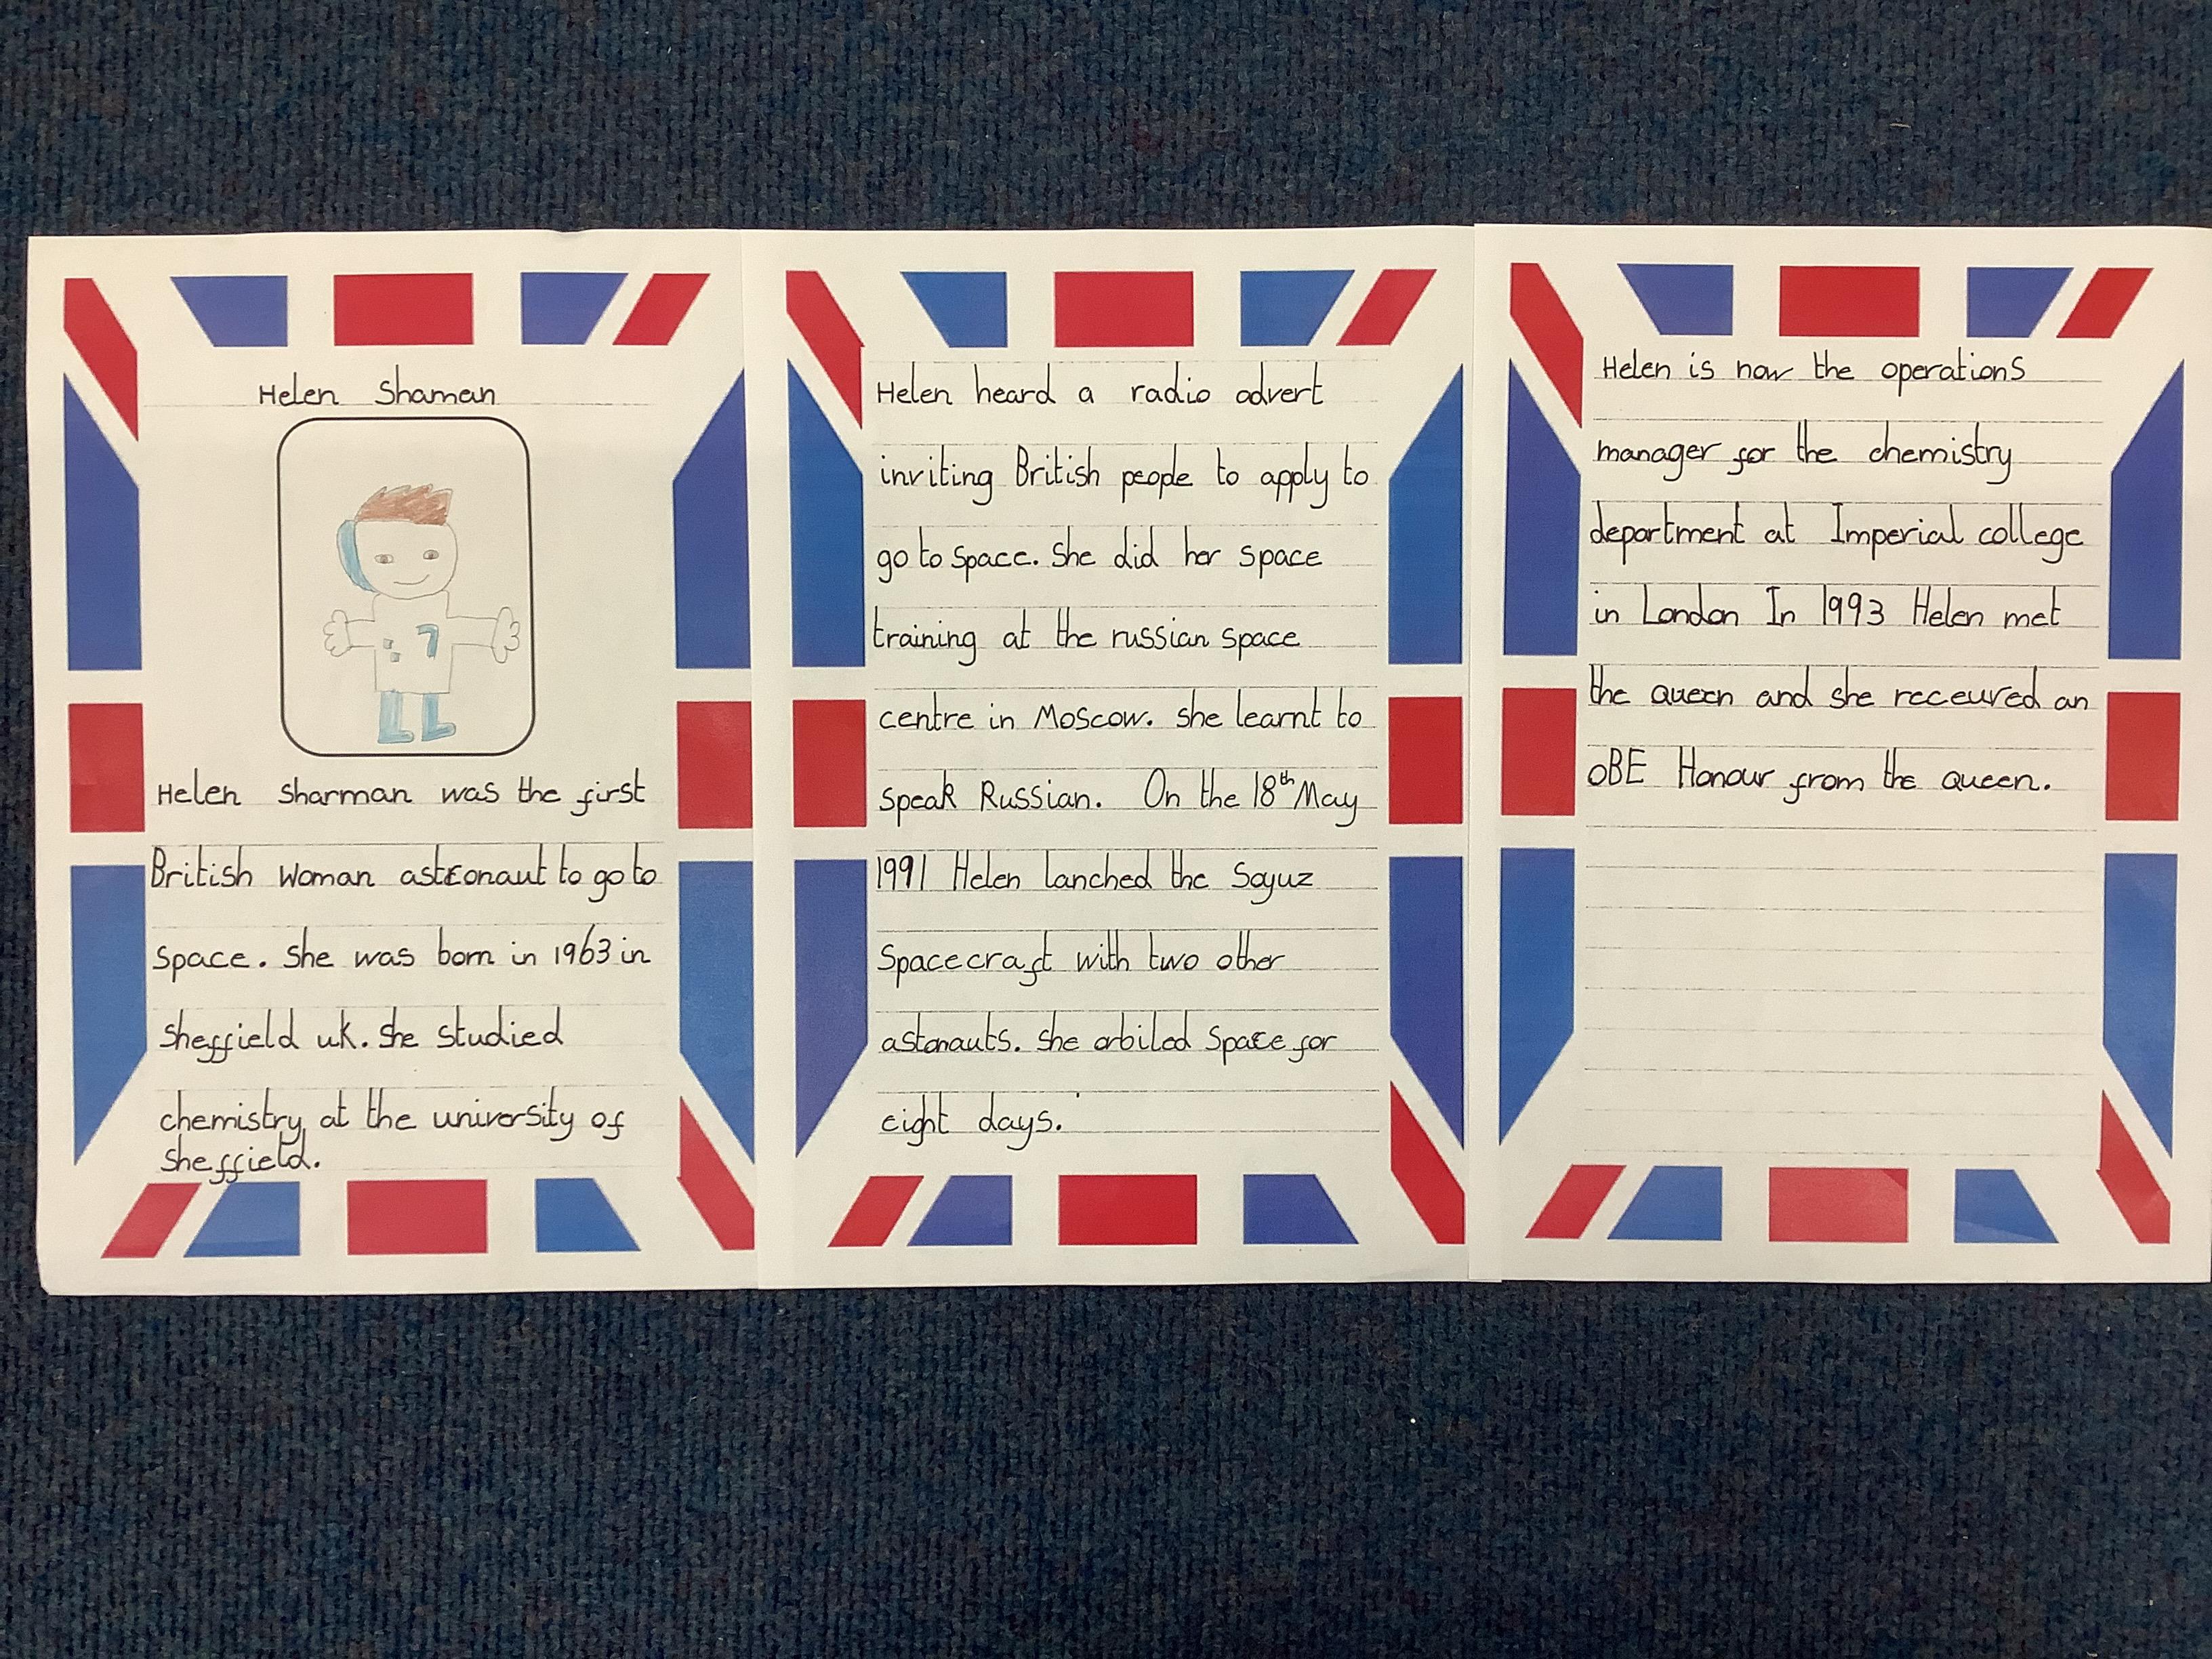 Helen Shaman
7
Helen Sharman was the first
British woman astronaut to go to
space. She was born in 1963 in
Sheffield uk. She studied
chemistry at the university of
Sheffield.
Helen heard a radio advert
inviting British people to apply to
go to space. She did her space
training at the russian space
centre in Moscow. She learnt to
speak Russian. On the 18th May
1991 Helen lanched the Soyuz
Spacecraft with two other
astonauts. She orbiled Space for
eight days.
Helen is now the operations
manager for the chemistry
department at Imperial college
in London In 1993 Helen met
the queen and she receured an
OBE Honour from the queen.